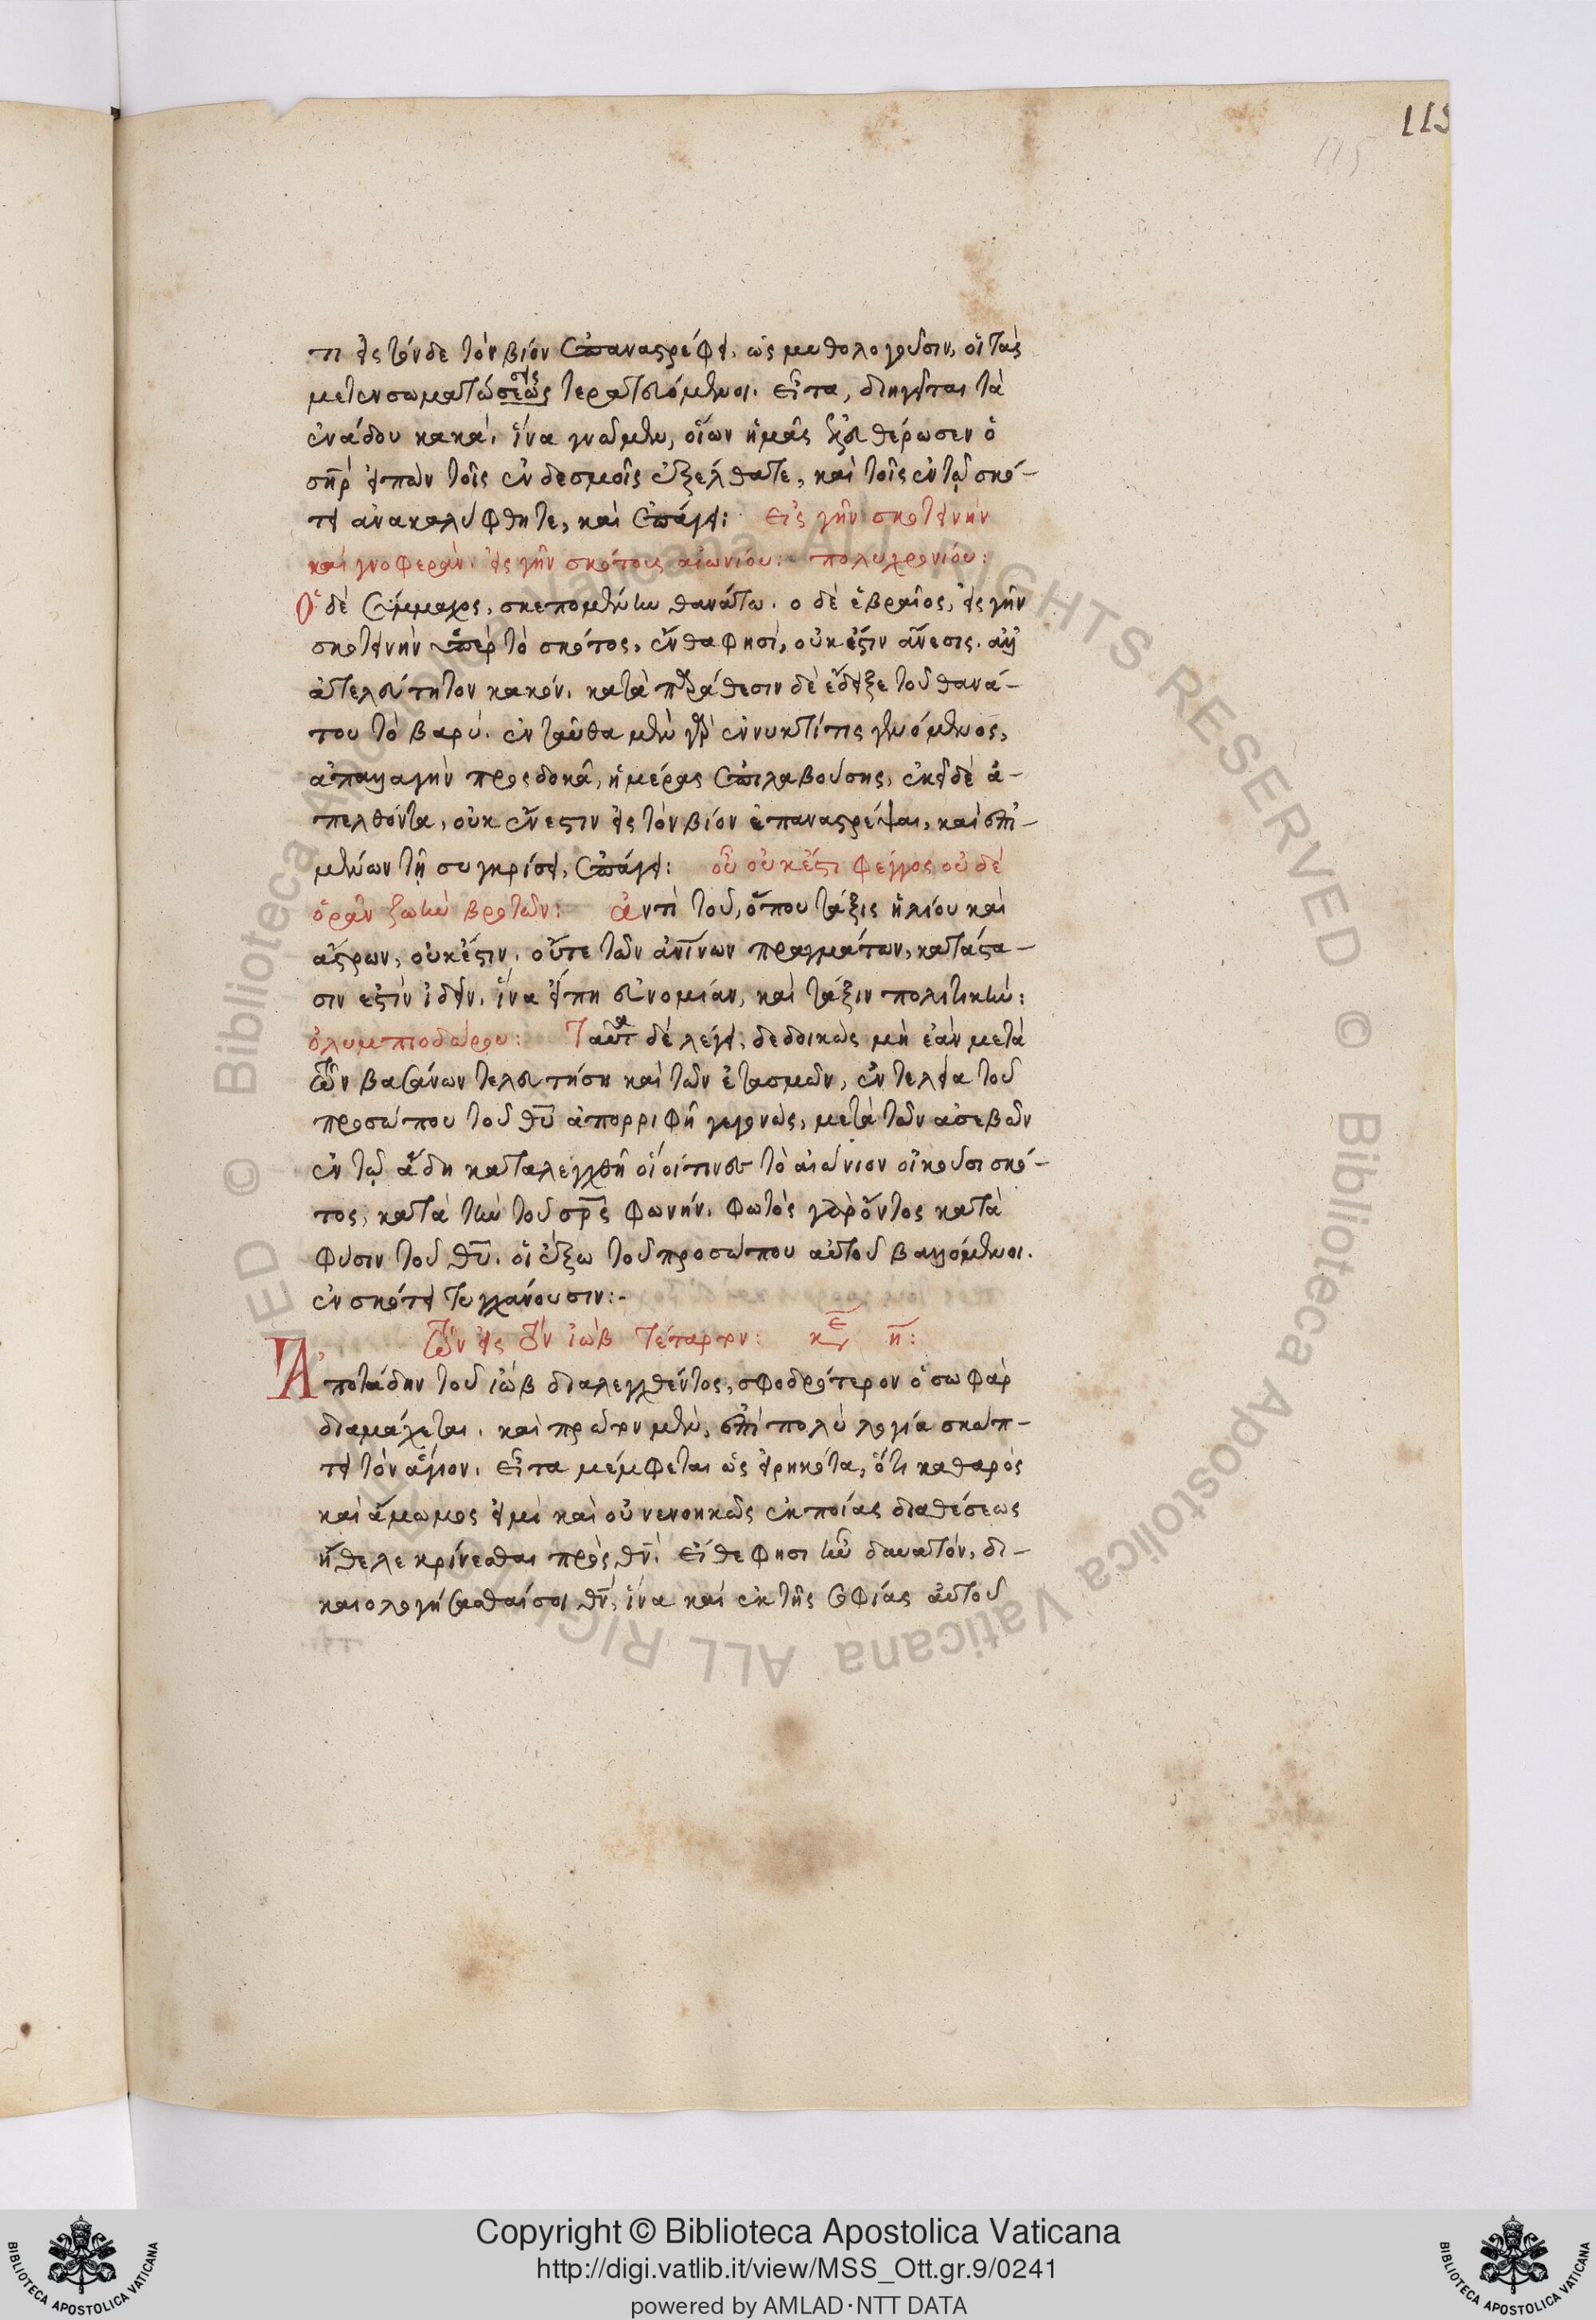 115
115
τι εἰς τόνδε τὸν βίον ἐπαναστρέφει, ὡς μυθολογοῦσιν, οἱ τὰς
μετενσωματώσεως τερατευόμενοι. εἶτα, διηγεῖται τὰ
ἐν ἅδου κακά, ἵνα γνῶμεν, οἵων ἡμᾶς ἠλευθέρωσεν ὁ
σηρ εἰπὼν τοῖς ἐν δεσμοῖς ἐξέλθατε, καὶ τοῖς ἐν τῷ σκό-
τει ἀνακαλύφθητε, καὶ ἐπάγει: Εἰς γῆν σκοτεινὴν
καὶ γνοφεράν. εἰς γῆν σκότους αἰωνίου: πολυχρονίου:
Ὁ δὲ Σύμμαχος, σκεπομένην θανάτω. ο δὲ ἑβραῖος, εἰς γῆν
σκοτεινὴν ὥσπερ τὸ σκότος, ἔνθα φησὶ, οὐκ ἔστιν ἄνεσις. ἀλλ'
ἀτελεύτητον κακόν. κατὰ παράθεσιν δὲ ἔδειξε τοῦ θανά-
του τὸ βαρύ. ἐνταῦθα μὲν γὰρ ἐν νυκτί τις γενόμενος,
ἀπαλλαγὴν προσδοκᾷ, ἡμέρας ἐπιλαβούσης, ἐκεῖ δὲ ἀ-
πελθόντα, οὐκ ἔνεστιν εἰς τὸν βίον ἐπαναστρέψαι, καὶ ἐπι-
μένων τῇ συγκρίσει, ἐπάγει: οὗ οὐκ ἔστι φέγγος οὐδὲ
ὁρᾶν ζωὴν βροτῶν: ἀντὶ τοῦ, ὅπου τάξις ἡλίου καὶ
ἄστρων, οὐκ ἔστιν. οὔτε τῶν ἀνίνων πραγμάτων, κατάστα-
σιν εστὶν ἰδεῖν. ἵνα εἴπη εὐνομίαν, καὶ τάξιν πολιτικήν:
ὀλυμπιοδώρου: Ταῦτα δὲ λέγει, δεδοικὼς μὴ ἐὰν μετὰ
τῶν βασάνων τελευτήση καὶ τῶν ἐτασμῶν, ἐντελεῖα τοῦ
προσώπου τοῦ θυ ἀπορριφῆ γεγονὼς, μετὰ τῶν ἀσεβῶν
ἐν τῷ ἅδη καταλεγχθῆ οἱ οἵτινες τὸ αἰώνιον οἰκοῦσι σκό-
τος, κατὰ τὴν τοῦ σρς φωνήν. φωτὸς γὰρ ὄντος κατὰ
φύσιν τοῦ θυ. οἱ ἔξω τοῦ προσώπου αὐτοῦ βαλλόμενοι.
ἐν σκότει τυγχάνουσιν:-
Τῶν εἰς τὸν ἰὼβ τέταρτον: κε η:
Ἀποτάδην τοῦ ἰὼβ διαλεγχθέντος, σφοδρότερον ὁ σωφὰρ
διαμάχεται. καὶ πρῶτον μὲν, ἐπὶ πολὺ λογία σκώπ-
τει τὸν ἅγιον. εἶτα μέμφεται ὡς εἰρηκότα, ὅτι καθαρὸς
καὶ ἄμωμος εἰμὶ καὶ οὐ νενοηκῶς ἐκ ποίας διαθέσεως
ἤθελε κρίνεσθαι πρὸς θν. εἴθε φησι ἦν δυνατὸν, δι-
καιολογήσασθαί σοι θν, ἵνα καὶ ἐκ τῆς σοφίας αὐτοῦ
© Biblioteca Apostolica Vaticana ALL RIGHTS RESERVED © Biblioteca Apostolica Vaticana ALL RIGHTS RESERVED
Copyright © Biblioteca Apostolica Vaticana
http://digi.vatlib.it/view/MSS_Ott.gr.9/0241
powered by AMLAD·NTT DATA
BIBLIOTECA APOSTOLICA VATICANA
BIBLIOTECA APOSTOLICA VATICANA